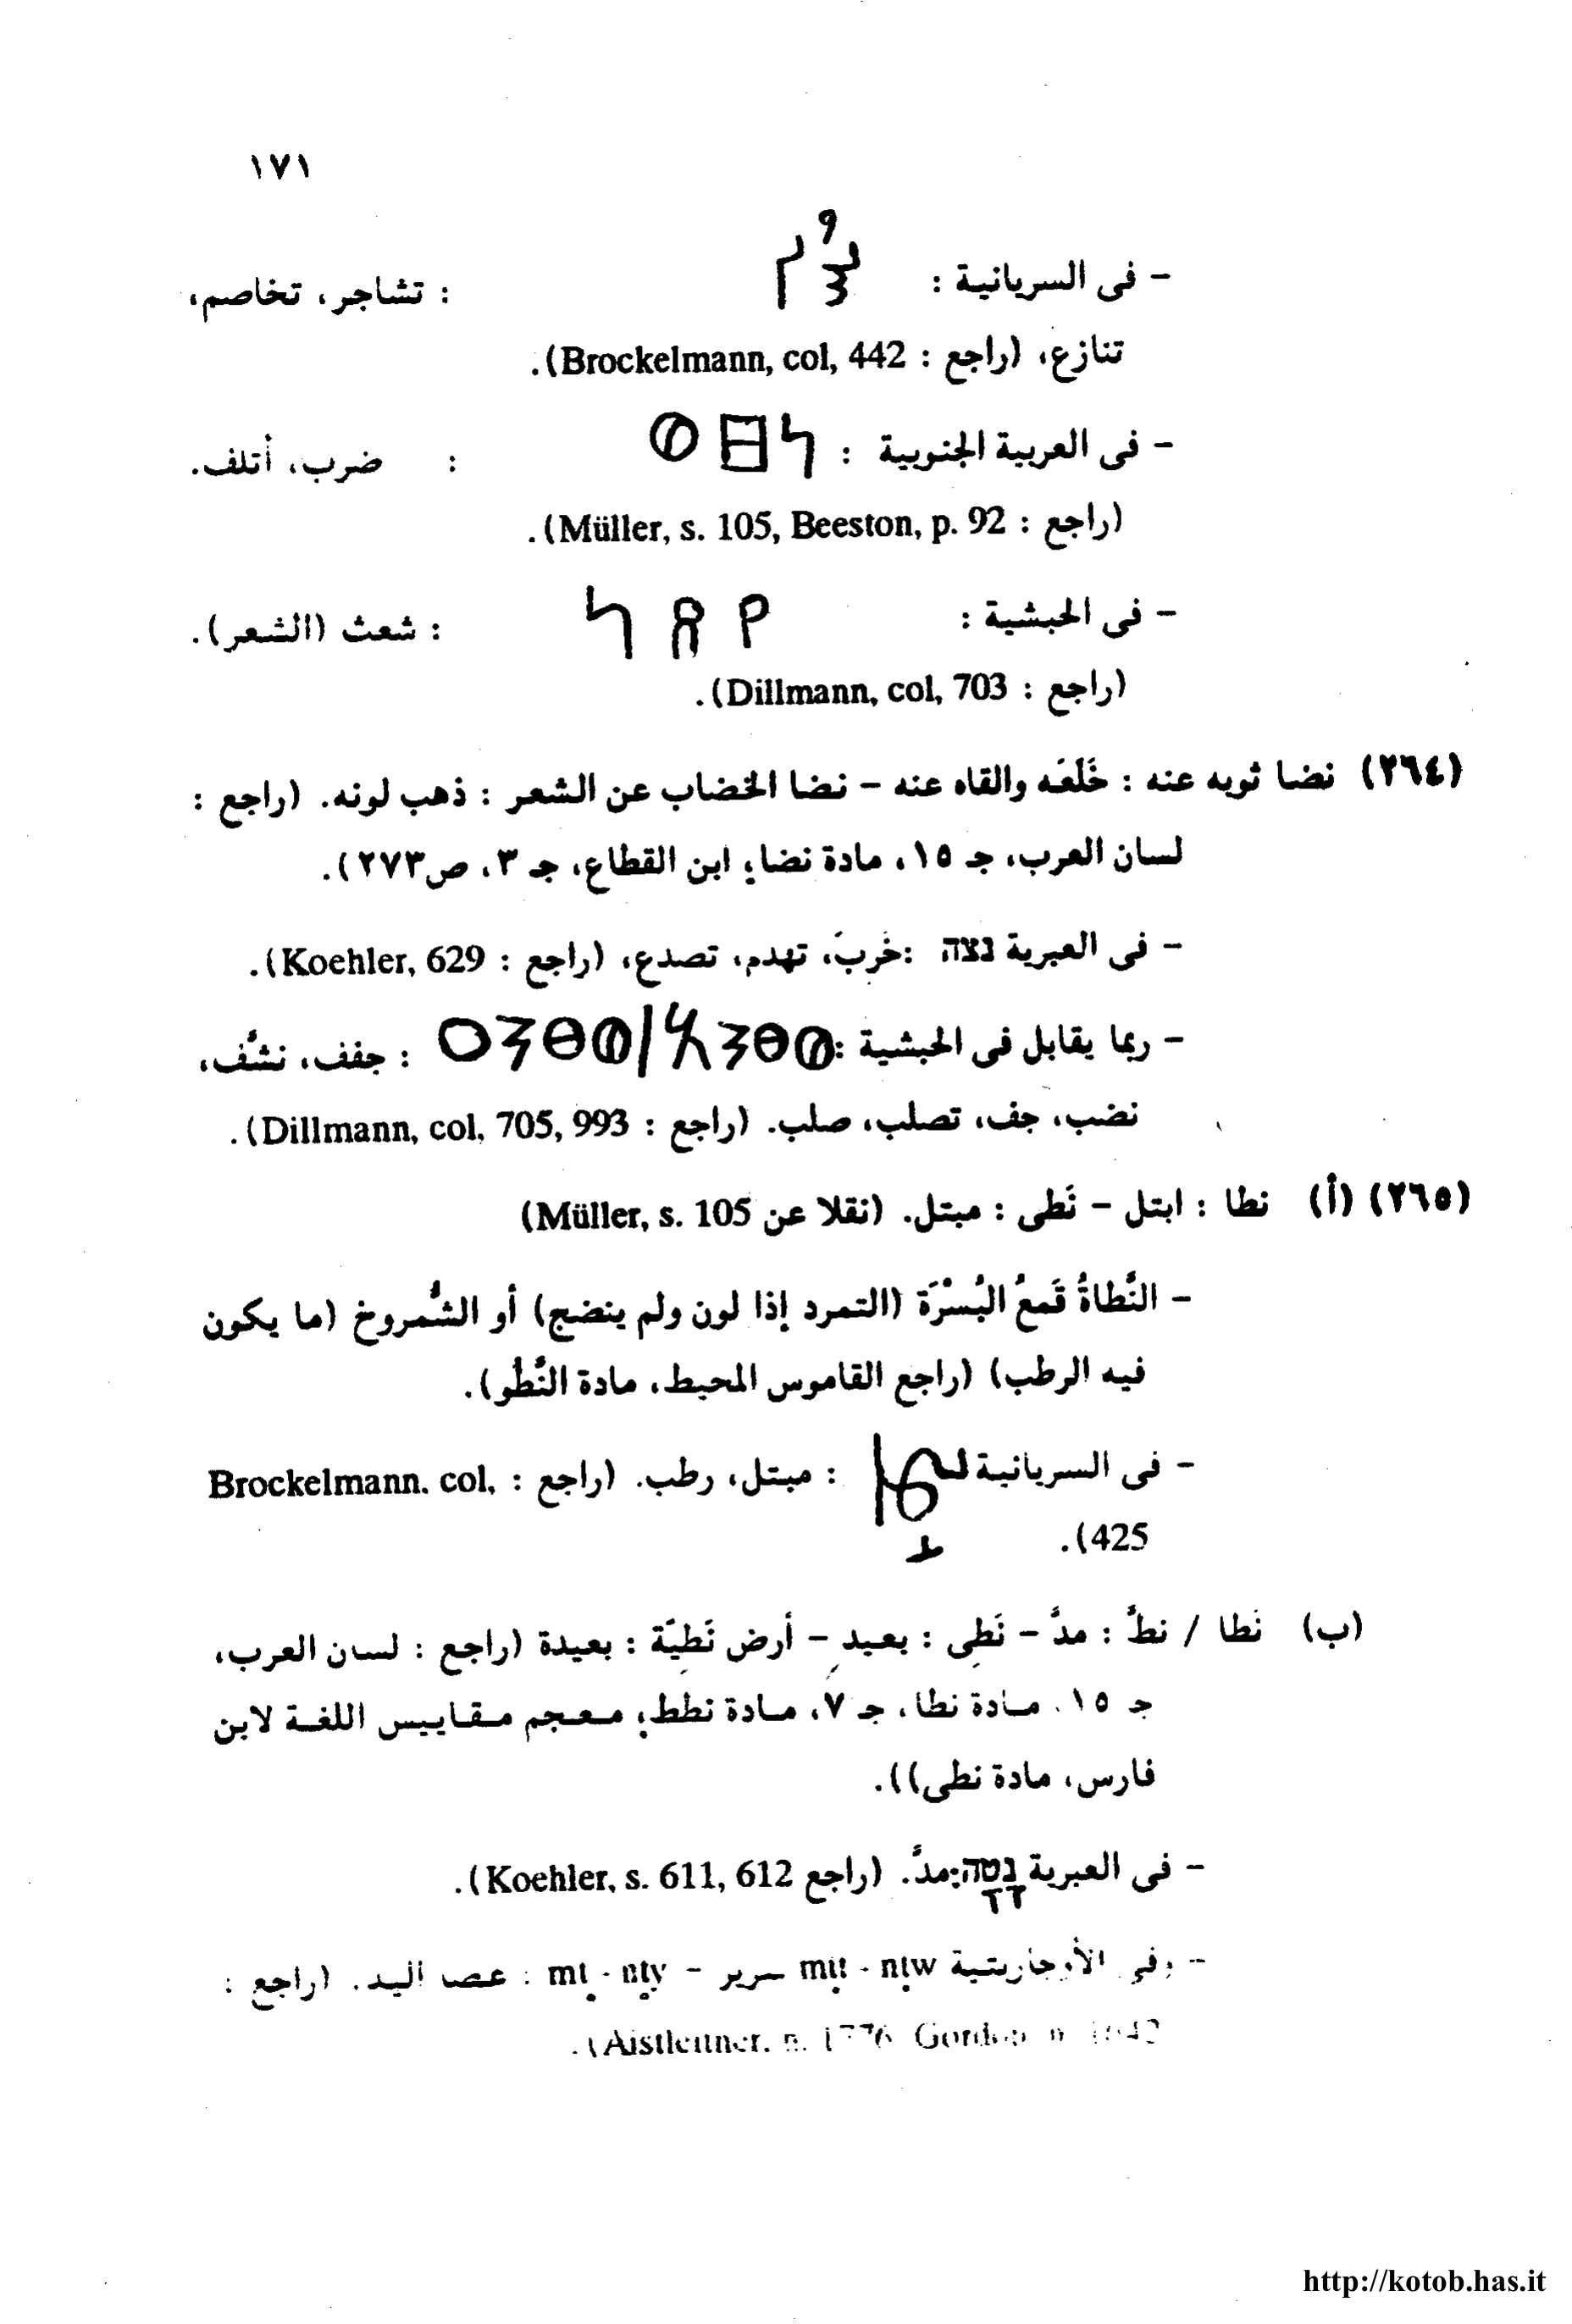 ١٧١
- فى السريانية : : تشاجر، تخاصم،
تنازع، (راجع : Brockelmann, col, 442).
- فى العربية الجنوبية : 𐩬𐩳𐩥 : ضرب، أتلف.
(راجع : Müller, s. 105, Beeston, p. 92).
- فى الحبشية : : شعث (الشعر).
(راجع : Dillmann, col, 703).
(٢٦٤) نضا ثوبه عنه : خَلَعَه والقاه عنه - نضا الخضاب عن الشعر : ذهب لونه. (راجع :
لسان العرب، جـ ١٥، مادة نضا؛ ابن القطاع، جـ ٣، ص٢٧٣).
- فى العبرية נצה :خَرِبَ، تهدم، تصدع، (راجع : Koehler, 629).
- ربما يقابل فى الحبشية : : جفف، نشَّف،
نضب، جف، تصلب، صلب. (راجع : Dillmann, col, 705, 993).
(٢٦٥) (أ) نطا : ابتل - نَطى : مبتل. (نقلا عن Müller, s. 105)
- النَّطاةُ قَمعُ البُسْرَة (التمرد إذا لون ولم ينضج) أو الشُّمروخ (ما يكون
فيه الرطب) (راجع القاموس المحيط، مادة النَّطْو).
- فى السريانية : مبتل، رطب. (راجع : Brockelmann. col,
425).
(ب) نَطا / نطَّ : مدَّ - نَطِى : بعيد - أرض نَطِيَّة : بعيدة (راجع : لسان العرب،
جـ ١٥، مادة نطا، جـ ٧، مادة نطط؛ معجم مقاييس اللغة لابن
فارس، مادة نطى)).
- فى العبرية נָטָה:مدَّ. (راجع Koehler, s. 611, 612).
- وفى الأوجاريتية mṭṭ - nṭw سرير - mṭ - nṭy : عصا اليد. (راجع :
Aistleitner. n. 1776 Gordon n).
http://kotob.has.it